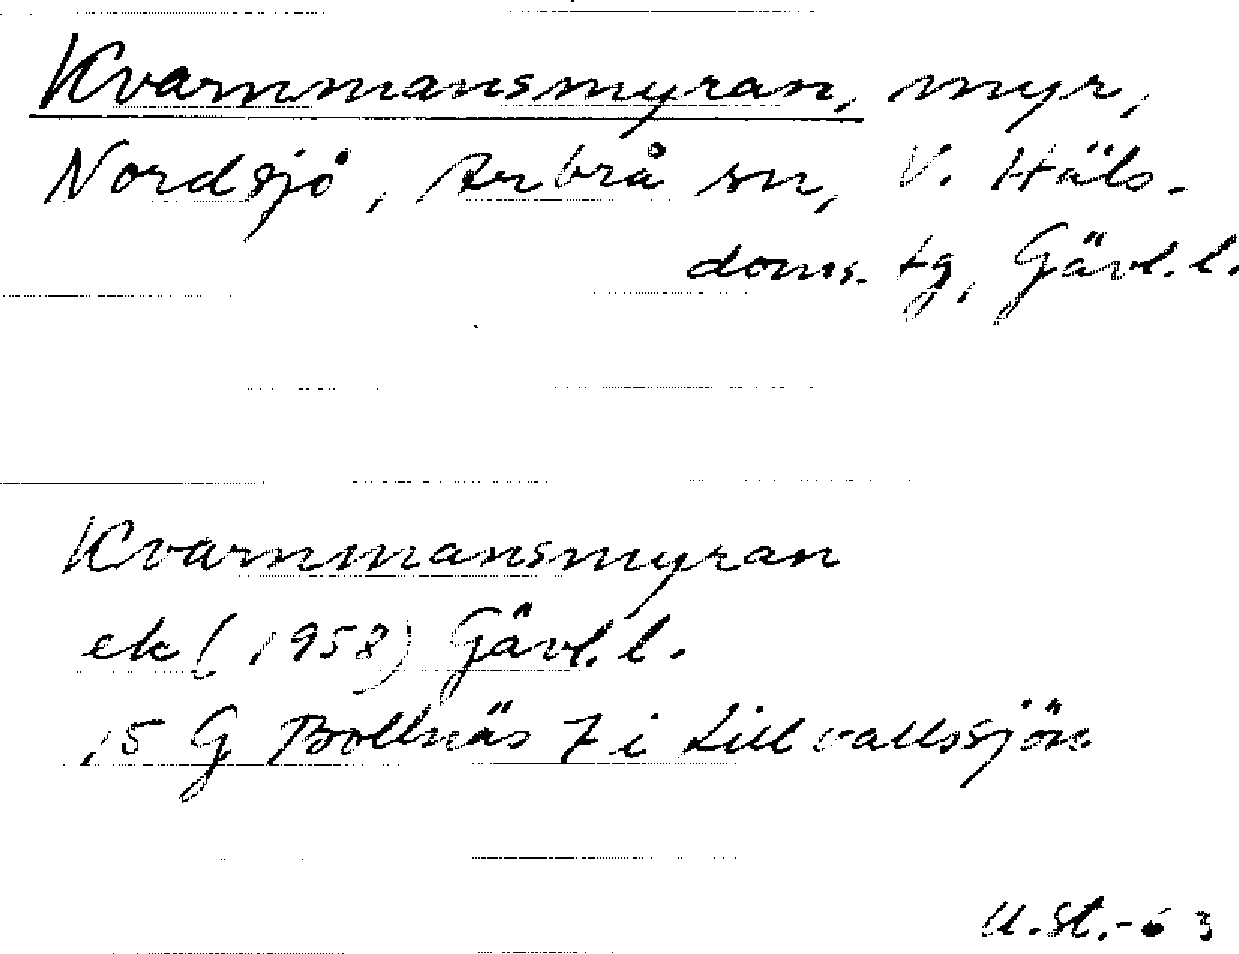 Kvarnmansmyran, myr,
Nordsjö, Arbrå sn, V. Häls.
doms. tg, Gävl. l.
Kvarnmansmyran
ek (1958) Gävl. l.
15 G Bollnäs 7 i Lillvallssjön
U. St. -63